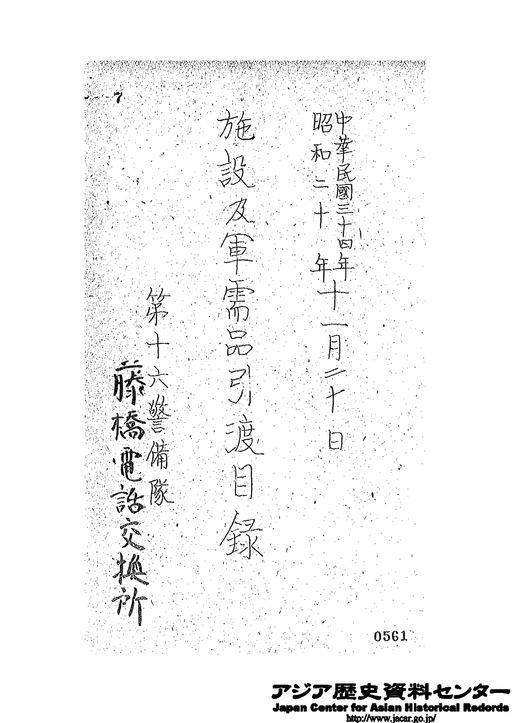 中華民國三十四年
昭和二十年十一月二十日
施設及軍需品引渡目録
第十六警備隊
藤橋電話交換所
7
0561
アジア歴史資料センター
Japan Center for Asian Historical Records
http://www.jacar.go.jp/